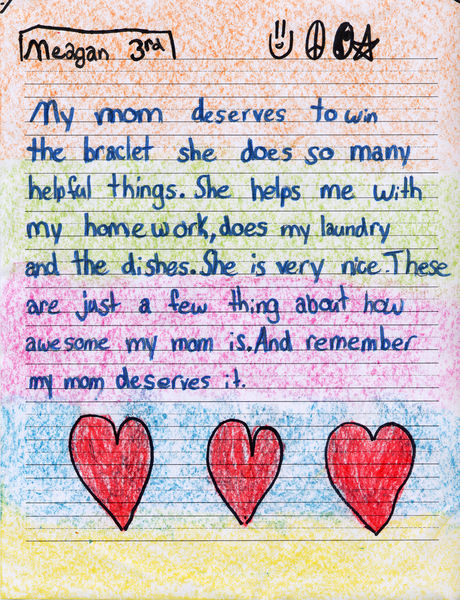 Meagan 3rd
My mom deserves to win
the braclet she does so many
helpful things. She helps me with
my homework, does my laundry
and the dishes. She is very nice. These
are just a few thing about how
awesome my mom is. And remember
my mom deserves it.